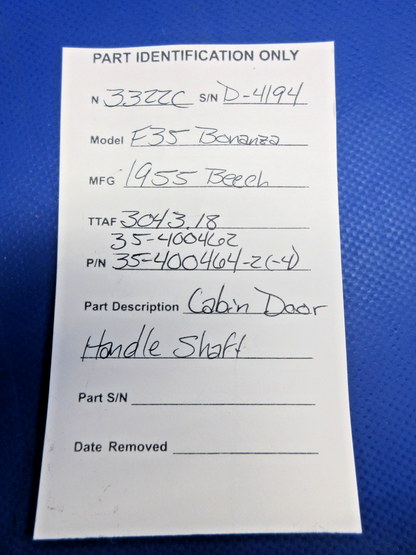 PART IDENTIFICATION ONLY
N 3322C S/N D-4194
Model F35 Bonanza
MFG 1955 Beech
TTAF 3043.18
35-400462
P/N 35-400464-2(-4)
Part Description Cabin Door
Handle Shaft
Part S/N
Date Removed